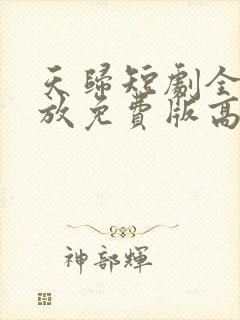 天歸短劇全
放免費版高
神部輝